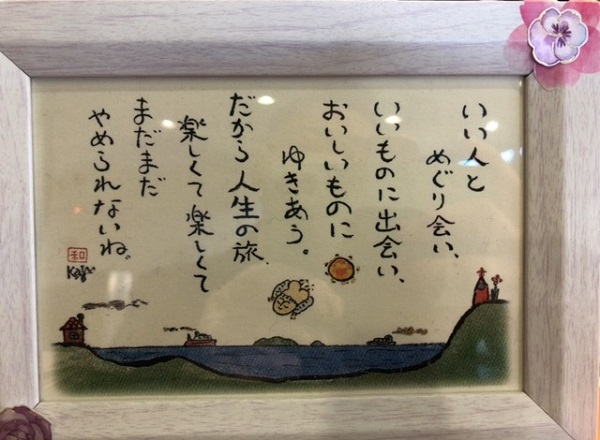 いい人と
めぐり会い、
いいものに出会い、
おいしいものに
ゆきあう。
だから人生の旅、
楽しくて楽しくて
まだまだ
やめられないね。
和